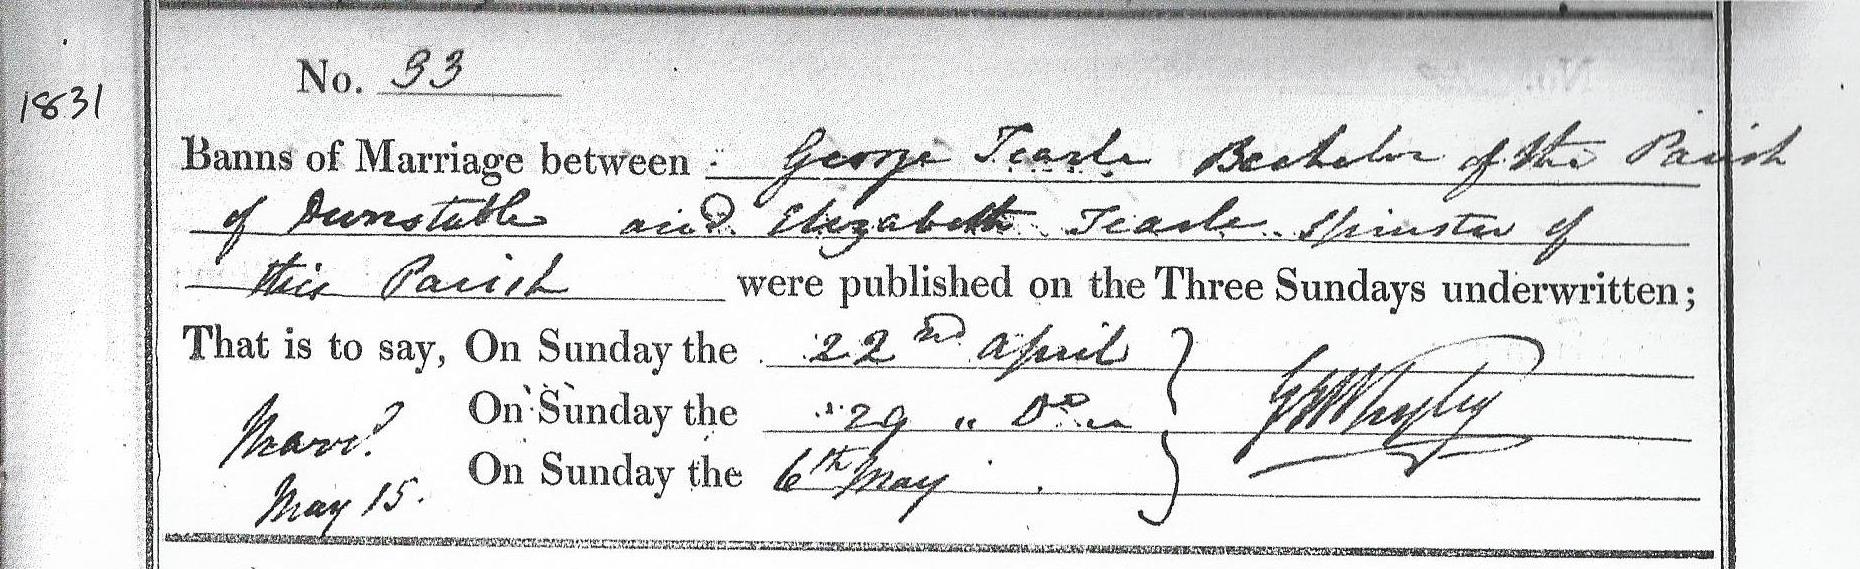 No. 33
1831
Banns of Marriage between George Tearle Bachelor of the Parish
of Dunstable and Elizabeth Tearle Spinster of
this Parish were published on the Three Sundays underwritten;
That is to say, On Sunday the 22nd April
On Sunday the 29 " Do "
On Sunday the 6th May
Marrd
May 15.